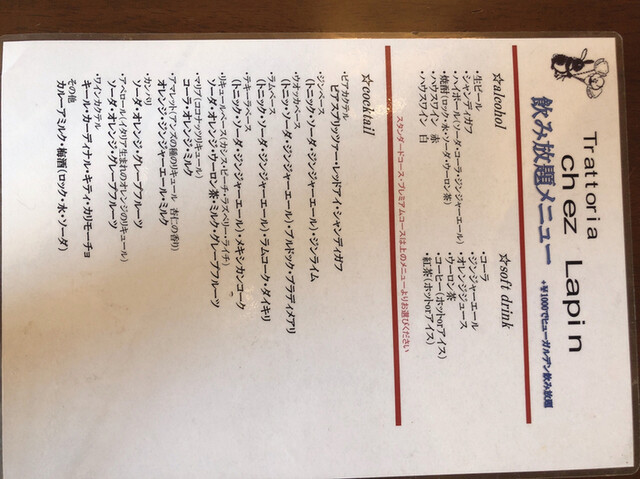 Trattoria
chez Lapin
飲み放題メニュー +¥1000でヒューガルデン飲み放題
☆alcohol
・生ビール
・シャンディガフ
・ハイボール(ソーダ・コーラ・ジンジャーエール)
・焼酎(ロック・水・ソーダ・ウーロン茶)
・ハウスワイン 赤
・ハウスワイン 白
☆soft drink
・コーラ
・ジンジャーエール
・オレンジジュース
・ウーロン茶
・コーヒー(ホットorアイス)
・紅茶(ホットorアイス)
スタンダードコース・プレミアムコースは上のメニューよりお選びください
☆cocktail
・ビアカクテル
ビアスプリッツァー・レッドアイ・シャンディガフ
・ジンベース
(トニック・ソーダ・ジンジャーエール)・ジンライム
・ウオッカベース
(トニック・ソーダ・ジンジャーエール)・ブルドック・ブラディメアリ
・ラムベース
(トニック・ソーダ・ジンジャーエール)・ラムコーク・ダイキリ
・テキーラベース
(トニック・ソーダ・ジンジャーエール)・メキシカン・コーク
・リキュールベース(カシス・ピーチ・ラズベリー・ライチ)
ソーダ・オレンジ・ウーロン茶・ミルク・グレープフルーツ
・マリブ(ココナッツリキュール)
コーラ・オレンジ・ミルク
・アマレット(アンズの種のリキュール 杏仁の香り)
オレンジ・ジンジャーエール・ミルク
・カンパリ
ソーダ・オレンジ・グレープフルーツ
・アペロール(イタリア生まれのオレンジのリキュール)
ソーダ・オレンジ・グレープフルーツ
・ワインカクテル
キール・カーディナル・キティ・カリモーチョ
その他
カルーアミルク・梅酒(ロック・水・ソーダ)